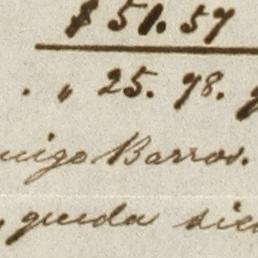 $ 51.57
. " 25. 98.
uigo Barros.
, queda sie